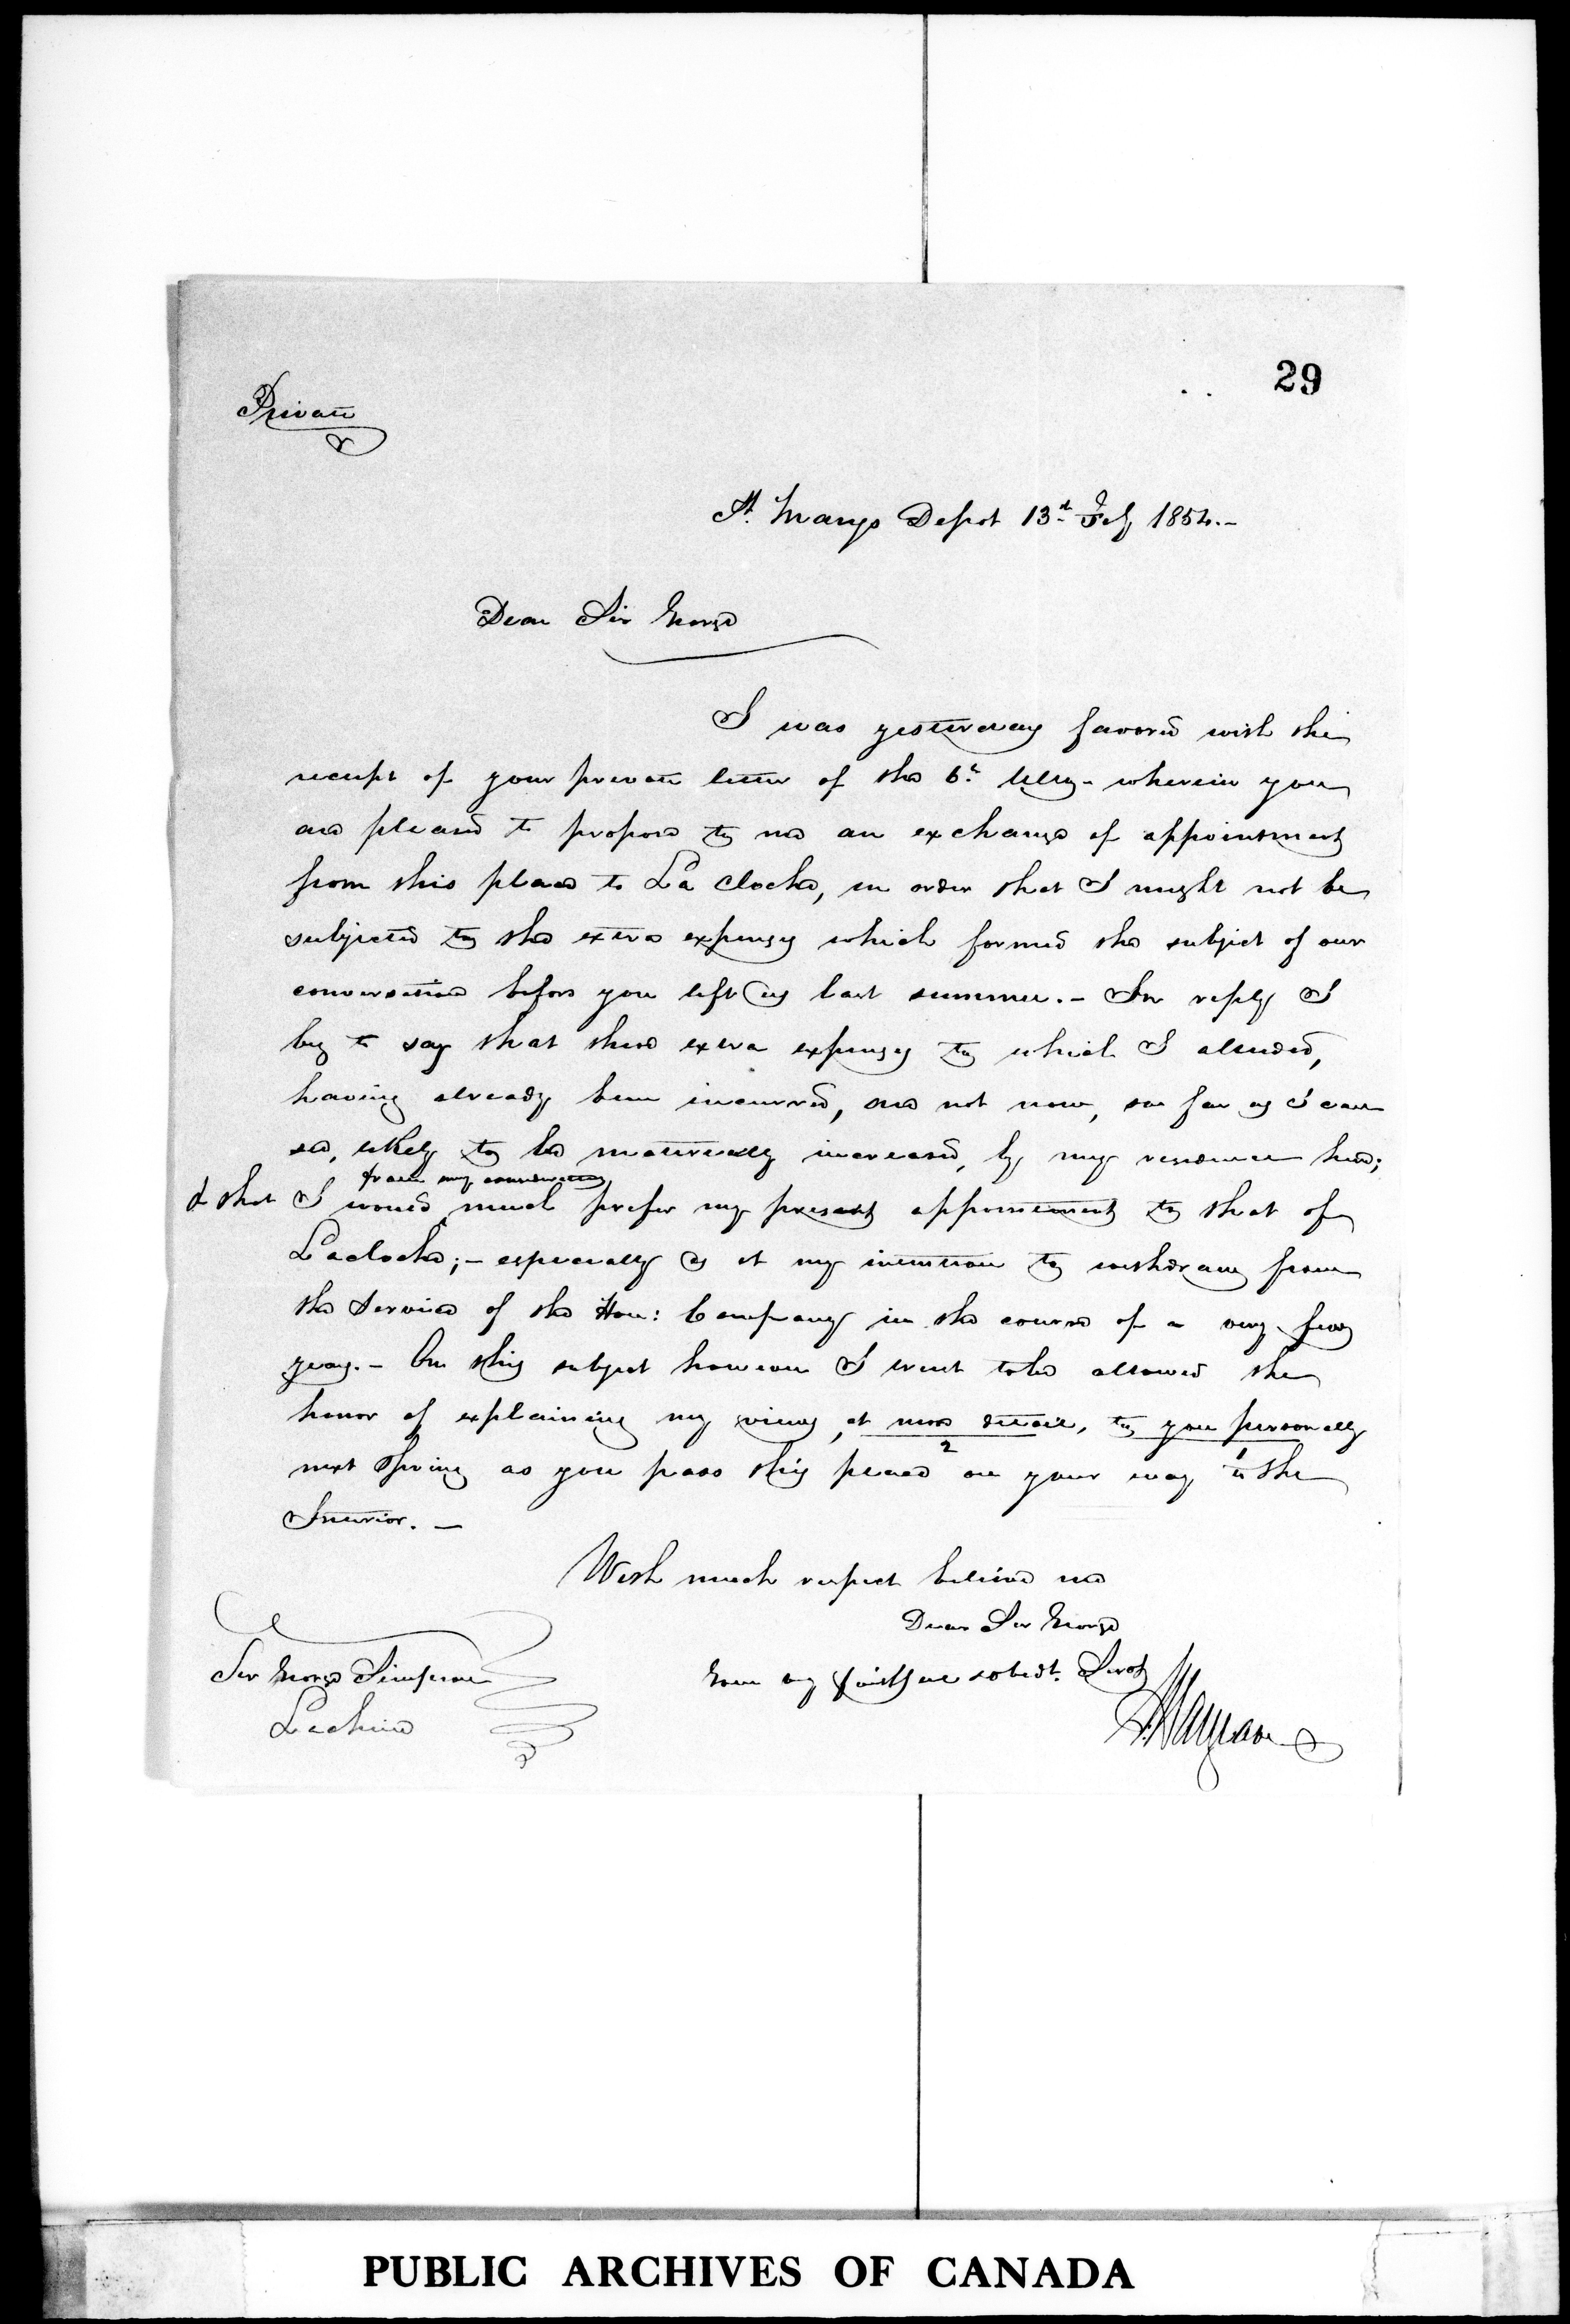 29
Private
St. Marys Depot 13th Feby 1854.-
Dear Sir George
I was yesterday favored with the
receipt of your private letter of the 6th Ulto - wherein you
are pleased to propose to me an exchange of appointment
from this place to La Cloche, in order that I might not be
subjected to the extra expenses which formed the subject of our
conversation before you left us last summer. - In reply I
beg to say that these extra expenses to which I alluded,
having already been incurred, are not now, so far as I can
see, likely to be materially increased, by my residence here;
from my
& that I would much prefer my present appointment to that of
Lacloche; - especially as it my intention to withdraw from
the Service of the Hon: Company in the course of a very few
years. - On this subject however I to be allowed the
honor of explaining my views, at more detail, to you personally
2 1
next Spring as you pass this place on your way to the
Interior. -
With much respect believe me
Dear Sir George
Your very faithful & obedt. Servt
Sir George Simpson
Lachine
J. Hargrave
PUBLIC ARCHIVES OF CANADA